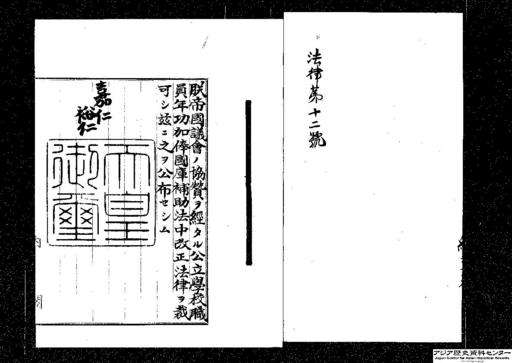 法律第十二號
朕帝國議會ノ協贊ヲ經タル公立學校職
員年功加俸國庫補助法中改正法律ヲ裁
可シ玆ニ之ヲ公布セシム
嘉仁
裕仁
天皇
御璽
内閣
アジア歴史資料センター
Japan Center for Asian Historical Records